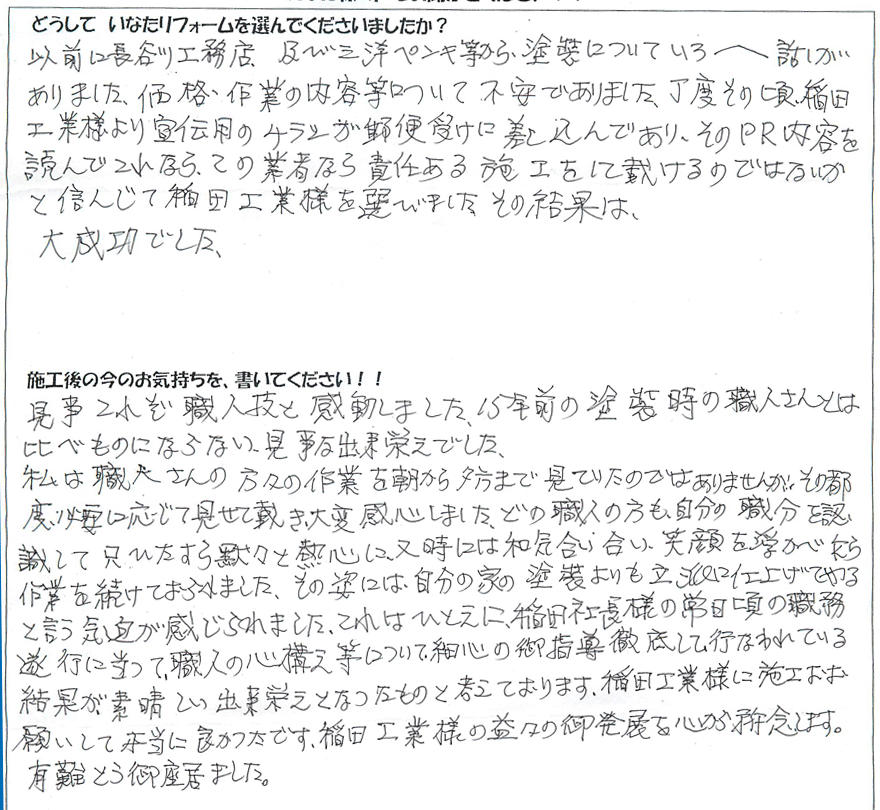 どうして いなたリフォームを選んでくださいましたか？
以前に長谷川工務店、及び三洋ペンキ等から、塗装についていろ〳〵話しが
ありました、価格、作業の内容等について不安でありました、丁度その頃、稲田
工業様より宣伝用のチラシが郵便受けに差し込んであり、そのPR内容を
読んでこれなら、この業者なら責任ある施工をして戴けるのではないか
と信んじて稲田工業様を選びました。その結果は、
大成功でした、
施工後の今のお気持ちを、書いてください！！
見事これぞ職人技と感動しました、15年前の塗装時の職人さんとは
比べものにならない、見事な出来栄えでした、
私は職人さんの方々の作業を朝から夕方まで見ていたのではありませんが、その都
度、必要に応じて見せて戴き、大変感心しました、どの職人の方も、自分の職分を認
識して只ひたすら黙々と熱心に、又時には和気合い合い、笑顔を浮かべたら
作業を続けておられました、その姿には、自分の家の塗装よりも立派に仕上げてやる
と言う気迫が感じられました、これはひとえに、稲田社長様の常日頃の職務
遂行に当って、職人の心構え等について、細心の御指導徹底して、行なわれている
結果が、素晴しい出来栄えとなったものと考えております、稲田工業様に施工をお
願いして本当に良かったです、稲田工業様の益々の御発展を心から祈念します。
有難とう御座居ました。